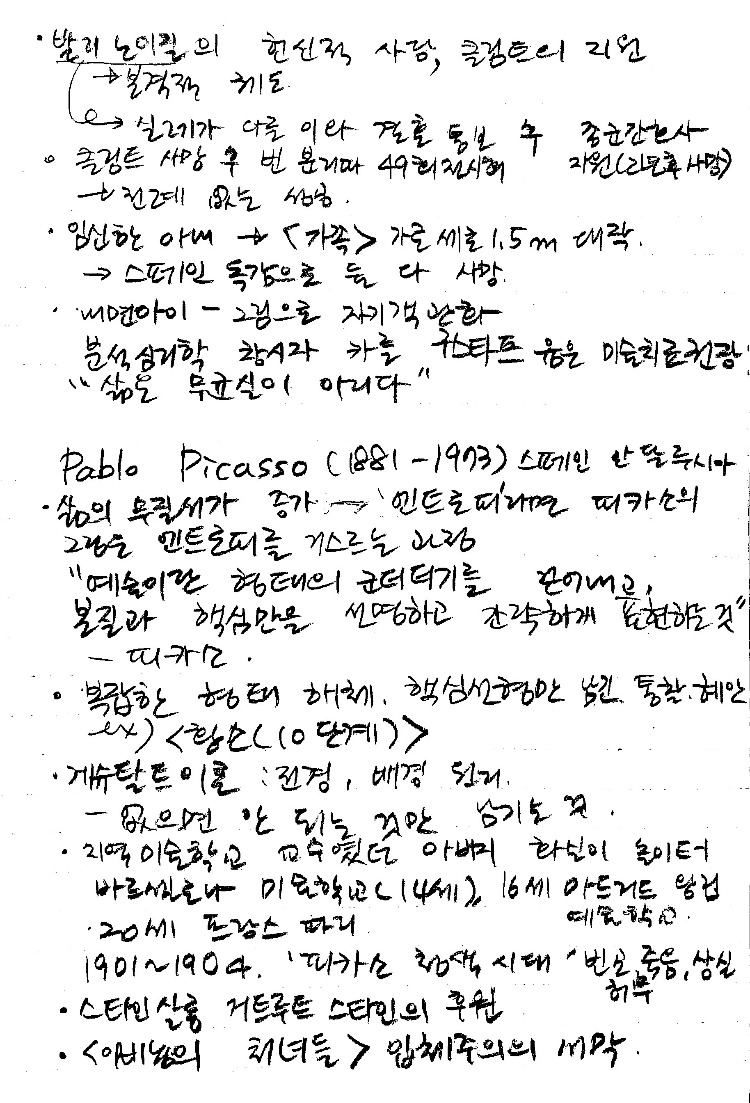 · 발리 노이질의 헌신적 사랑, 클림트의 지원
→ 본격적 체포
→ 실레가 다른 이와 결혼 통보 후 종군간호사
지원(2년후 사망)
○ 클림트 사망 후 빈 분리파 49회전시회
→ 전례 없는 성공.
· 임신한 아내 → <가족> 가로세로 1.5m 대작.
→ 스페인 독감으로 둘 다 사망.
· 내면아이 - 그림으로 자기객관화
분석심리학 창시자 카를 구스타프 융은 미술치료권광
"삶은 무균실이 아니다"
Pablo Picasso (1881-1973) 스페인 안달루시아
· 삶의 무질서가 증가 → '엔트로피'라면 피카소의
그림은 엔트로피를 거스르는 과정
"예술이란 형태의 군더더기를 걷어내고,
본질과 핵심만을 선명하고 간략하게 표현하는 것"
- 피카소.
· 복잡한 형태 해체, 핵심선형만 남긴 통찰·혜안
ex) <황소(10단계)>
· 게슈탈트이론 : 전경, 배경 원리.
- 없으면 안 되는 것만 남기는 것.
· 지역미술학교 교수였던 아버지 화실이 놀이터
바르셀로나 미술학교(14세), 16세 마드리드 왕립
예술학교.
· 20세 프랑스 파리
1901~1904. '피카소 청색시대' 빈곤, 죽음, 상실
허무
· 스타인살롱 거트루트 스타인의 후원
· <아비뇽의 처녀들> 입체주의의 서막.